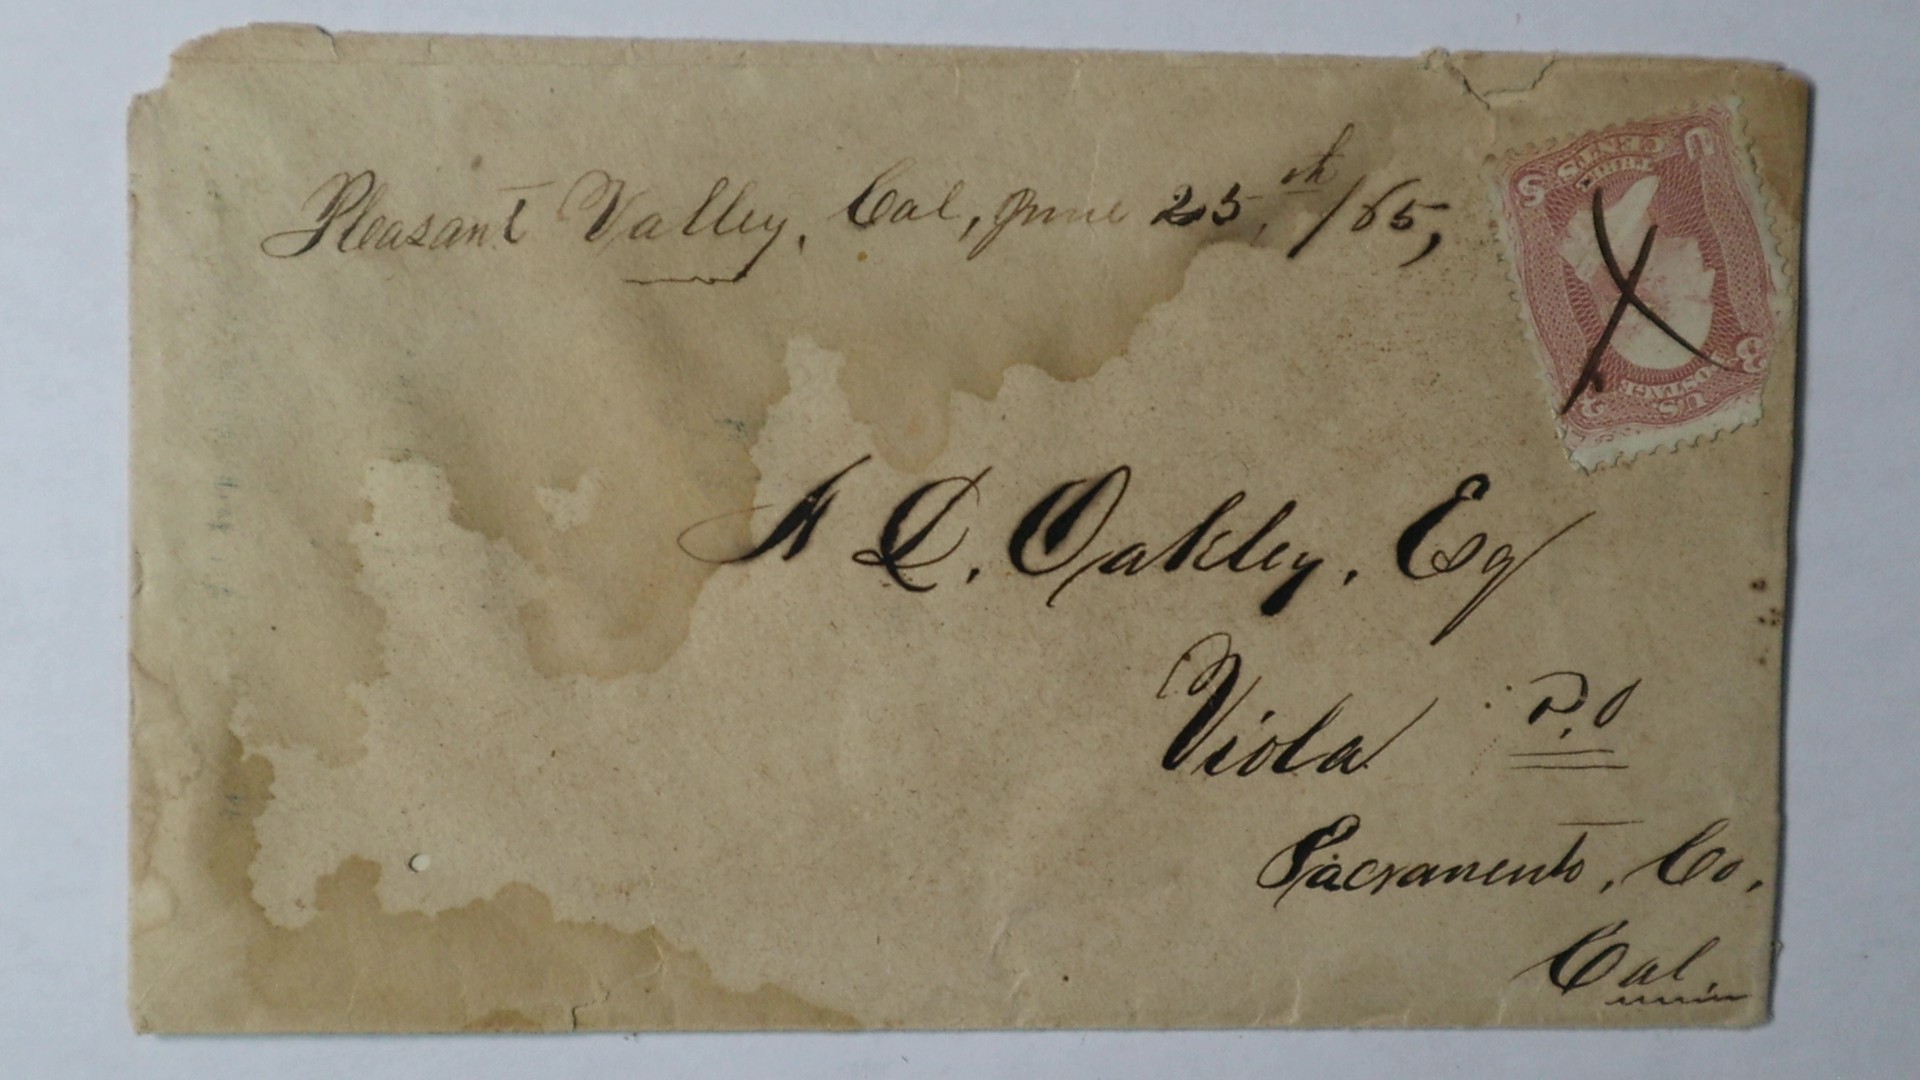 Pleasant Valley, Cal, June 25th, /65,
U S
THREE
CENTS
3 3
U.S. POSTAGE
A D. Oakley, Esq
Viola P.O
Sacramento, Co,
Cal.